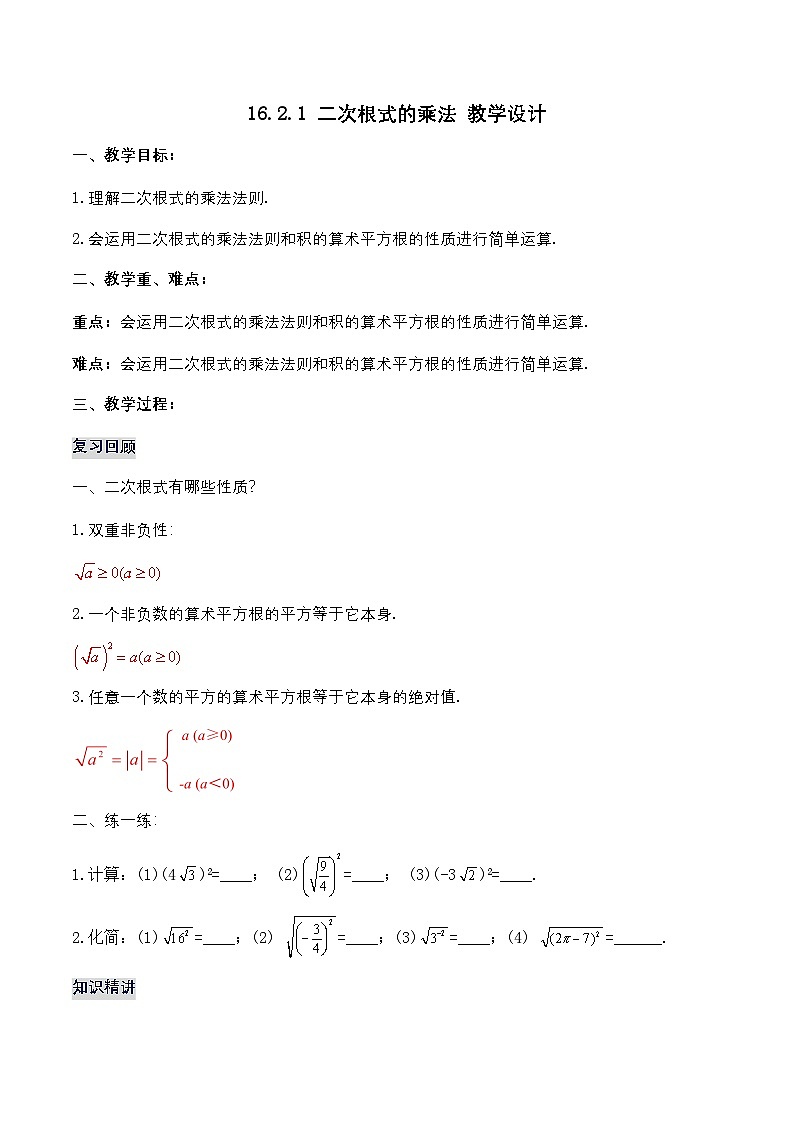 16.2.1 二次根式的乘法 教学设计
一、教学目标：
1.理解二次根式的乘法法则.
2.会运用二次根式的乘法法则和积的算术平方根的性质进行简单运算.
二、教学重、难点：
重点：会运用二次根式的乘法法则和积的算术平方根的性质进行简单运算.
难点：会运用二次根式的乘法法则和积的算术平方根的性质进行简单运算.
三、教学过程：
复习回顾
一、二次根式有哪些性质?
1.双重非负性:
√a ≥ 0(a ≥ 0)
2.一个非负数的算术平方根的平方等于它本身.
(√a)² = a(a ≥ 0)
3.任意一个数的平方的算术平方根等于它本身的绝对值.
√(a²) = |a| = { a (a≥0) -a (a＜0)
二、练一练:
1.计算：(1)(4√3)²=____； (2)(√(9/4))²=____； (3)(-3√2)²=____.
2.化简：(1)√(16²)=____；(2) √((-3/4)²)=____；(3)√(3⁻²)=____；(4) √((2π-7)²)=______.
知识精讲